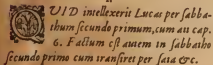 QVID intellexerit Lucas per sabba-
thum secundo primum, cum au cap.
6. Factum est autem in sabbatho
secundo primo cum transiret per sata &c.